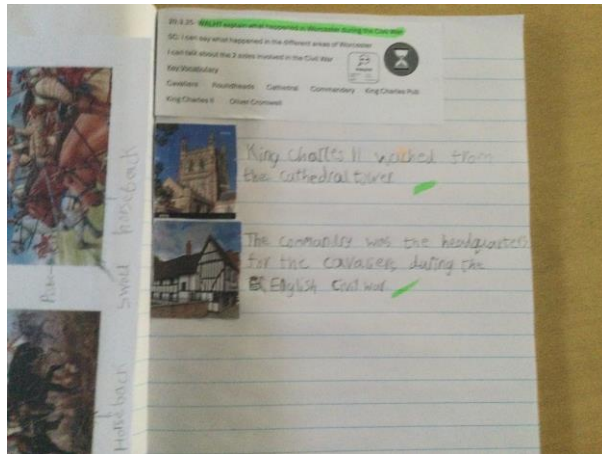 20.3.25- WALHT explain what happened in Worcester during the Civil War
SC: I can say what happened in the different areas of Worcester
I can talk about the 2 sides involved in the Civil War
Key Vocabulary
Cavaliers Roundheads Cathedral Commandery King Charles Pub
King Charles II Oliver Cromwell
King Charles II wached from
the cathedral tower
The commandry was the headquarters
for the cavaliers during the
English Civil war
horseback
sword
Horseback